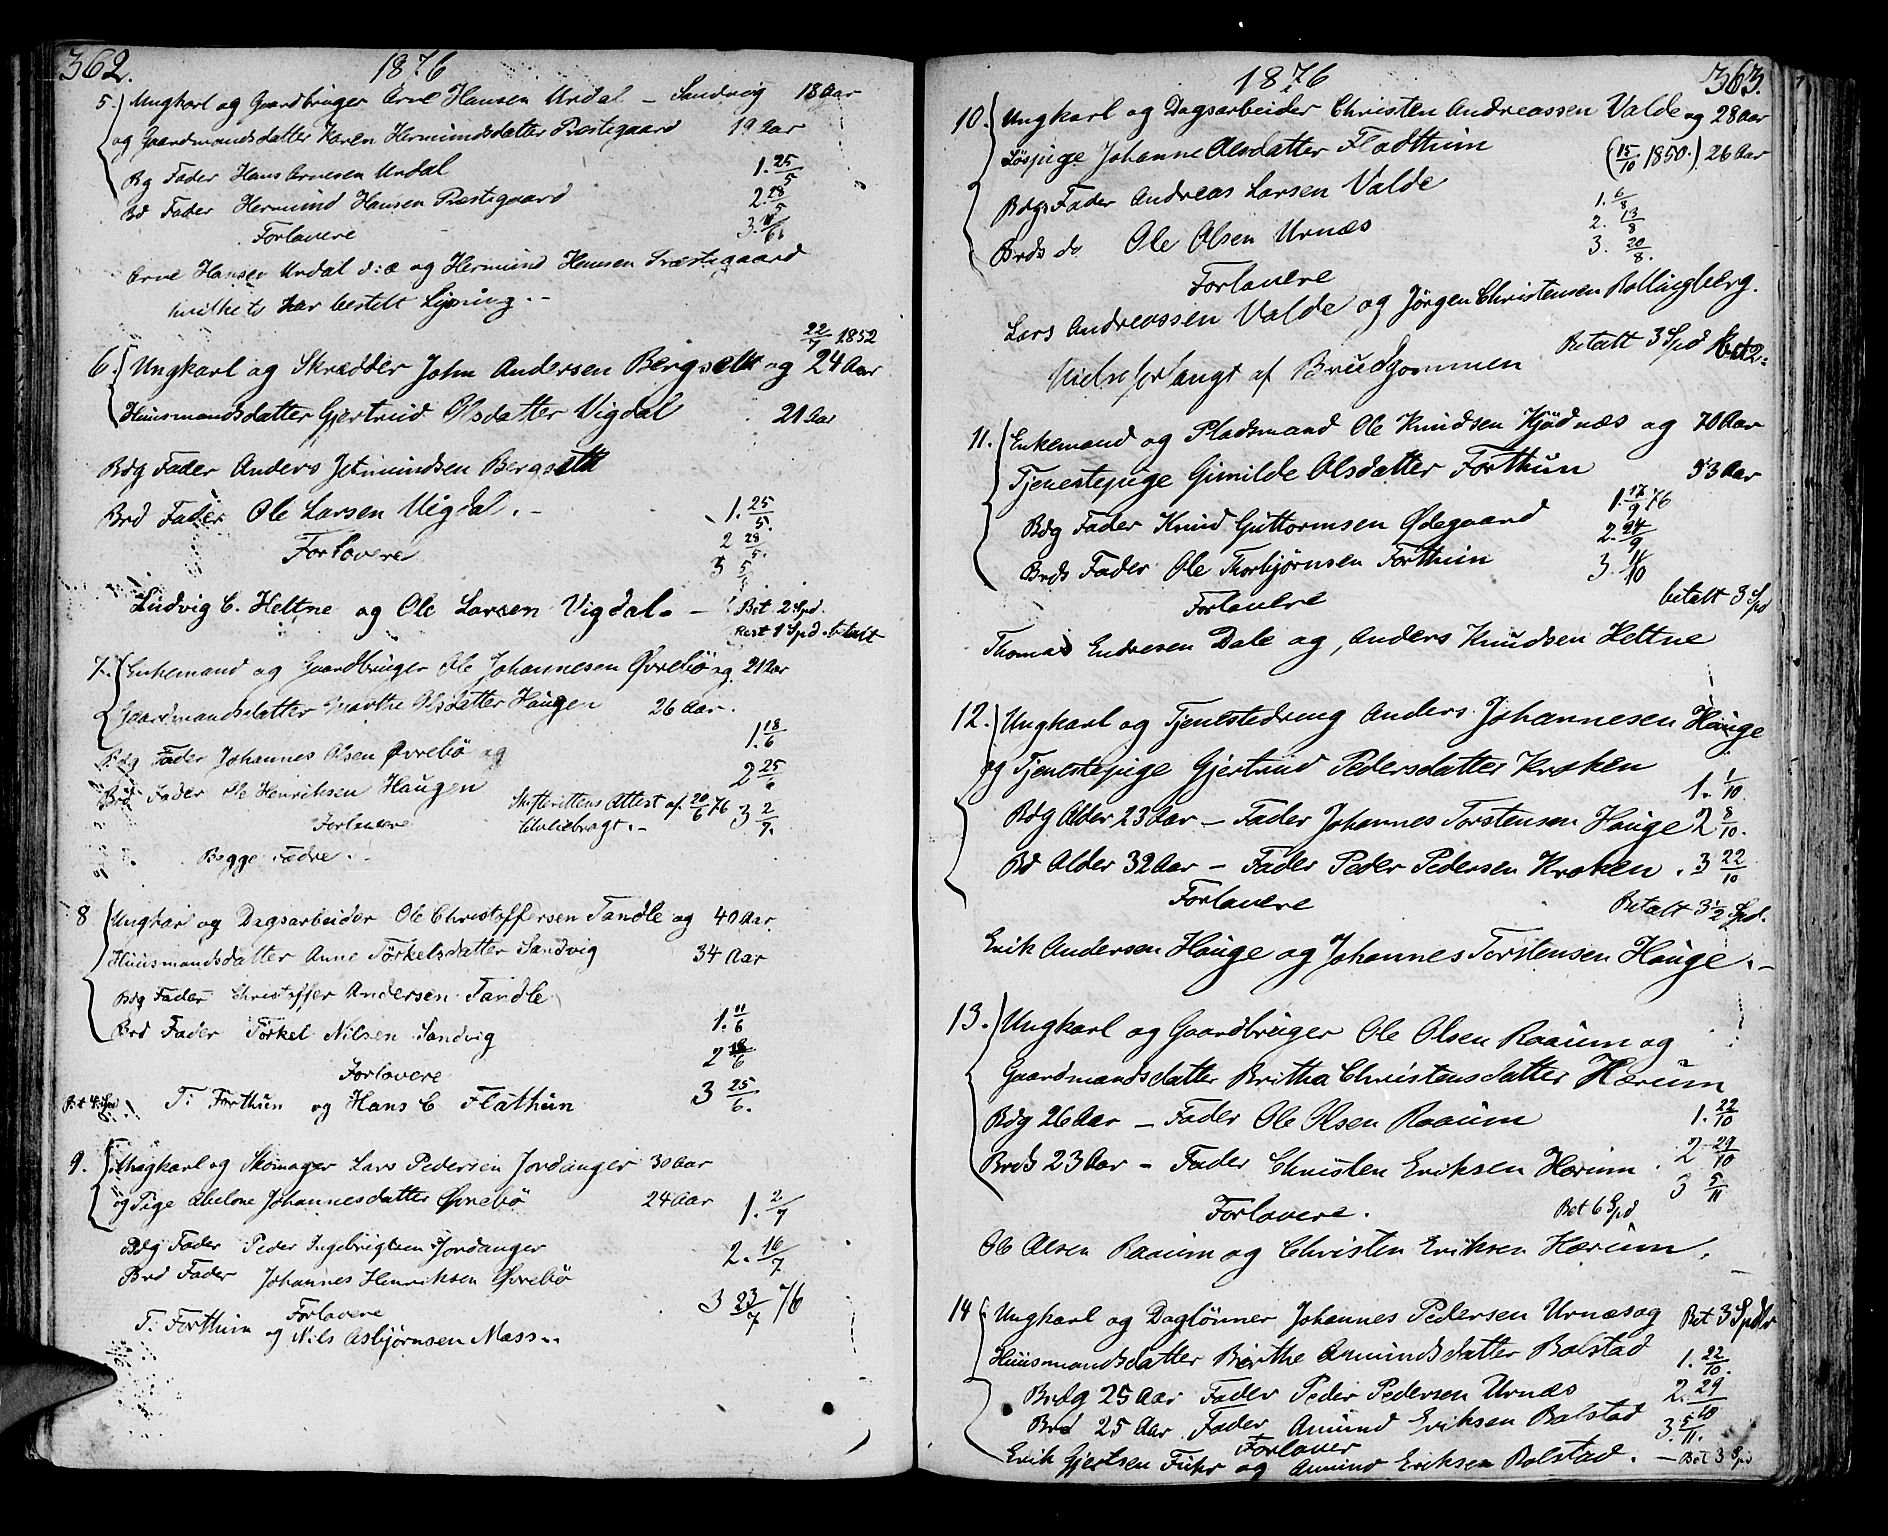 362.
1876
5. Ungkarl og Gaardbruger Arne Hansen Urdal – Sandvig 18 Aar
og Gaardmandsdatter Karen Hermundsdatter Præstegaard 19 Aar
Bg Fader Hans Arnesen Urdal 1. 25/5
Bd Fader Hermund Hansen Præstegaard 2. 28/5
Forlovere 3. /6
Arne Hansen Urdal og Hermund Hansen Præstegaard
har bestilt Lysning. –
22/7 1852
6. Ungkarl og Skrædder John Andersen Bergsett og 24 Aar
Huusmandsdatter Gjertrud Olsdatter Vigdal 21 Aar
Bdg Fader Anders Jetmundsen Bergsett
Brd Fader Ole Larsen Vigdal. – 1. 25/5.
Forlovere 2 28/5.
3 5/
Ludvig C. Heltne og Ole Larsen Vigdal. – Bet. 2 Spd.
Rest 1 Spd betalt
7. Enkemand og Gaardbruger Ole Johannesen Øvrebö og 21 Aar
Gaardmandsdatter Marthe Olsdatter Haugen 26 Aar.
Bdg Fader Johannes Olsen Øvrebö og 1. 18/6
Brd Fader Ole Henriksen Haugen 2 25/6
Skifterettens Attest af 20/6 76 3 2/7.
Forlovere
Begge Fædre. –
8 Ungkar og Dagsarbeider Ole Christoffersen Tandle og 40 Aar.
Huusmandsdatter Anne Törkelsdatter Sandvig 34 Aar
Bdg Fader Christoffer Andersen Tandle
Brd Fader Törkel Nilsen Sandvig 1. 11/6
2 18/6
Forlovere
T. Forthun og Hans C Flathun 3 25/6.
9. Ungkarl og Skomager Lars Pedersen Jordanger 30 Aar
og Pige Abelone Johannesdatter Øvrebö 24 Aar 1. 2/7
Bdg Fader Peder Ingebrigtsen Jordanger 2. 16/7
Brd Fader Johannes Henriksen Øvrebö
Forlovere 3 23/7 76
T. Forthun og Nils Asbjørnsen Mass..
1876
363.
10. Ungkarl og Dagsarbeider Christen Andreassen Valde og 28 Aar
Löspige Johanne Olsdatter Fladthun (15/10 1850.) 26 Aar
BdgsFader Andreas Larsen Valde 1. 6/8
Brds do Ole Olsen Urnæs 2. 13/8
3. 20/8.
Forlovere
Lars Andreassen Valde og Jörgen Christensen Bollingberg.
Betalt 3 Spd
af Brudgommen
11. Enkemand og Pladsmand Ole Knudsen Kjödnæs og 70 Aar
Tjenestepige Gunilde Olsdatter Forthun 53 Aar
1. 17/9 76
Bdg Fader Knud Guttormsen Ødegaard 2. 24/9
Brds Fader Ole Thorbjørnsen Forthun 3. /10
Forlovere betalt 3 Spd
Thomas Endresen Dale og, Anders Knudsen Heltne
12. Ungkarl og Tjenestedreng Anders Johannesen Hauge
og Tjenestepige Gjertrud Pedersdatter Kroken 1. 1/10.
Bdg Alder 23 Aar – Fader Johannes Torstensen Hauge 2 8/10.
Bd Alder 32 Aar – Fader Peder Pedersen Kroken. 3 22/10
Forlovere Betalt 3 1/2 Spd.
Erik Andersen Hauge og Johannes Torstensen Hauge. –
13. Ungkarl og Gaardbruger Ole Olsen Raaum og
Gaardmandsdatter Britha Christensdatter Hærum
Bdg 26 Aar – Fader Ole Olsen Raaum 1. 22/10
Brds 23 Aar – Fader Christen Eriksen Hærum. 2 29/10
3 5/11
Forlovere. Bet 6 Spd
Ole Olsen Raaum og Christen Eriksen Hærum.
14 Ungkarl og Daglönner Johannes Pedersen Urnæs og Bet 3 Spdlr
Huusmandsdatter Birthe Amundsdatter Bolstad 1. 22/10.
Brdg 25 Aar Fader Peder Pedersen Urnæs 2. 29/10
Brd 25 Aar Fader Amund Eriksen Bolstad 3. 5/11.
Forlover
Erik Gjertsen Fuhr og Amund Eriksen Bolstad. – Bet 3 Spd